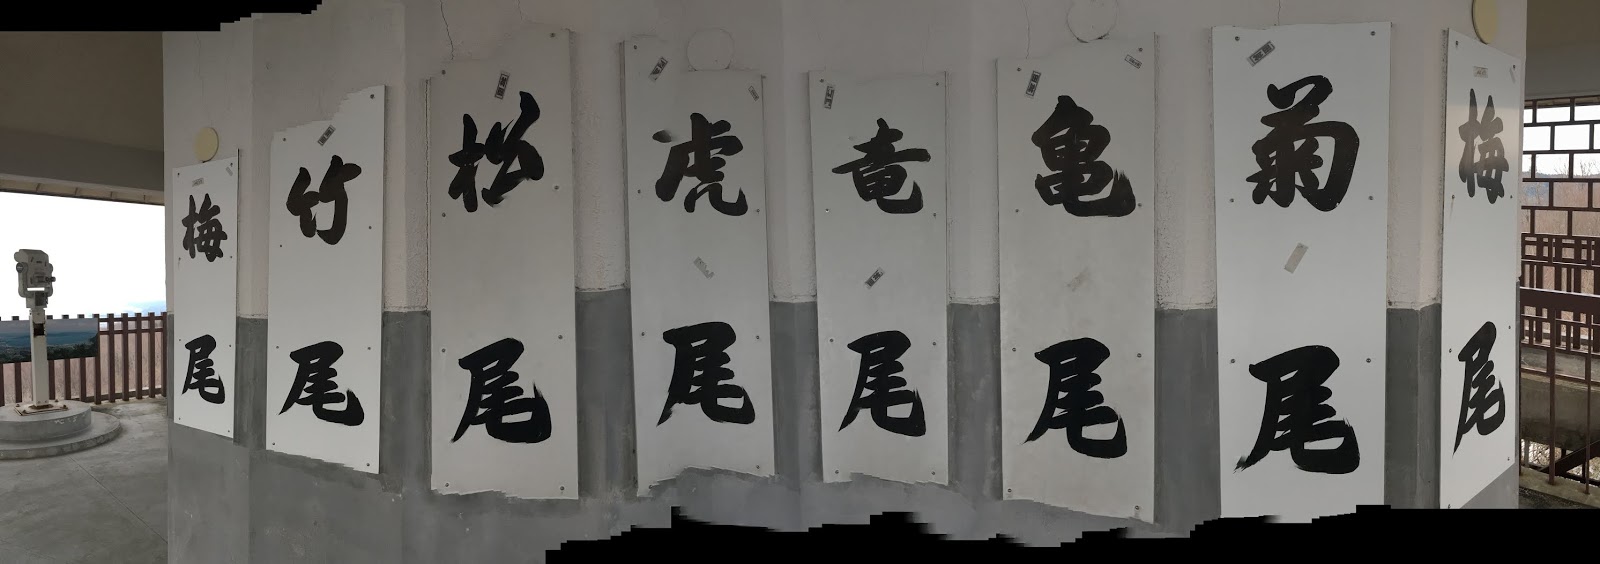 梅尾
竹尾
松尾
虎尾
竜尾
亀尾
菊尾
梅尾